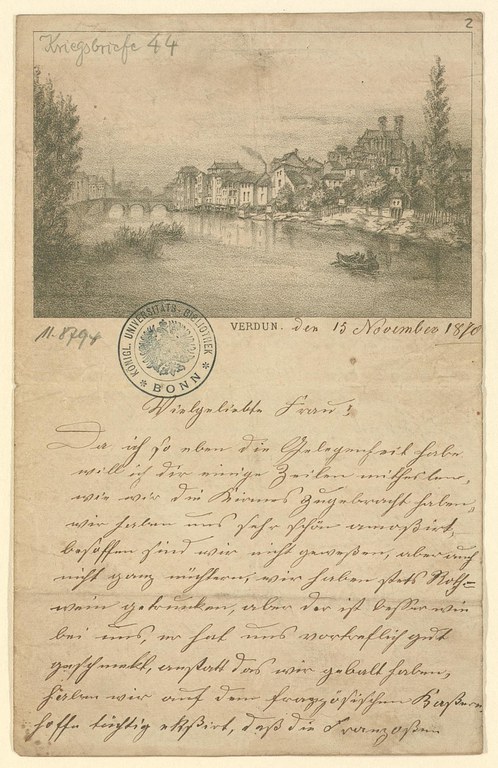 2
Kriegsbriefe 44
KÖNIGL. UNIVERSITÄTS-BIBLIOTHEK
BONN
VERDUN. den 15 November 1870
Vielgeliebte Frau!
Da ich so eben die Gelegenheit habe
will ich dir einige Zeilen mittheilen,
wie wir die Kirmes zugebracht haben,
wir haben uns sehr schön amoßirt,
besoffen sind wir nicht geweßen, aber auch
nicht ganz nüchtern, wir haben stets Roth=
wein getrunken, aber der ist besser wie
bei uns, er hat uns vortreflich gut
geschmekt, anstatt das wir gebalt haben,
haben wir auf dem französischen Kaßern
hoffe tüchtig ekßirt, daß die Franzoßen